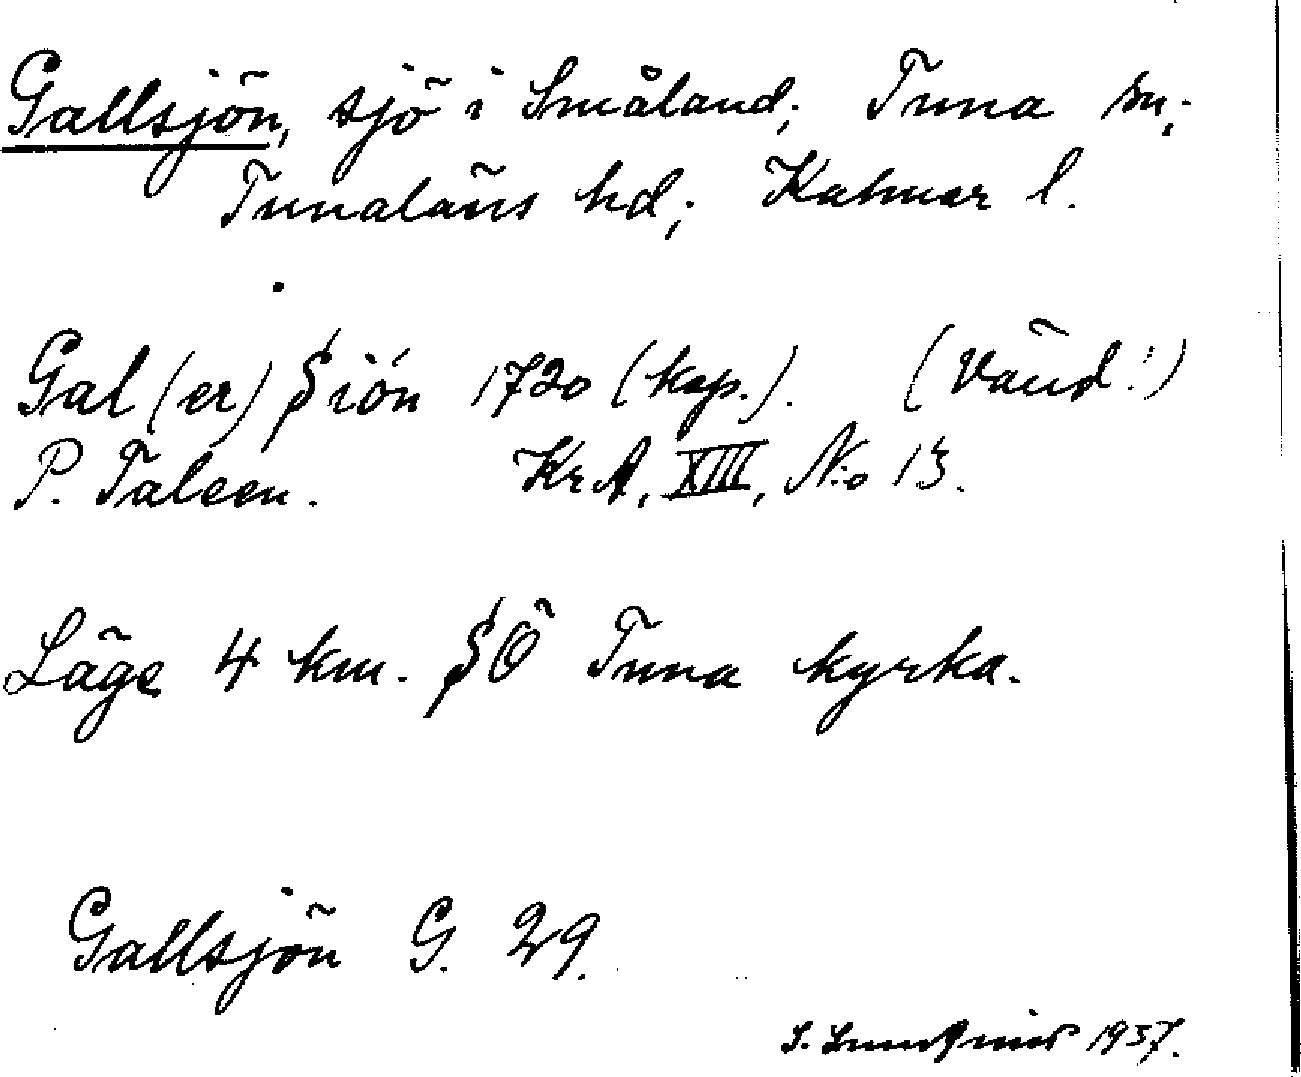 Gallsjön, sjö i Småland; Tuna sn;
Tunaläns hd; Kalmar l.
Gal(er) Siön 1720 (kap.). (Vänd!)
P. Taleen. KrA, XIII, No 13.
Läge 4 km. SÖ Tuna kyrka.
Gallsjön G. 29.
S. 1937.